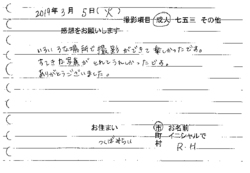 2019年3月5日(火)
撮影項目 成人 七五三 その他
感想をお願いします
いろいろな場所で撮影ができて楽しかったです。
すてきな写真がとれてうれしかったです。
ありがとうございました。
お住まい 市町村 お名前 イニシャルで
つくばみらい R.H